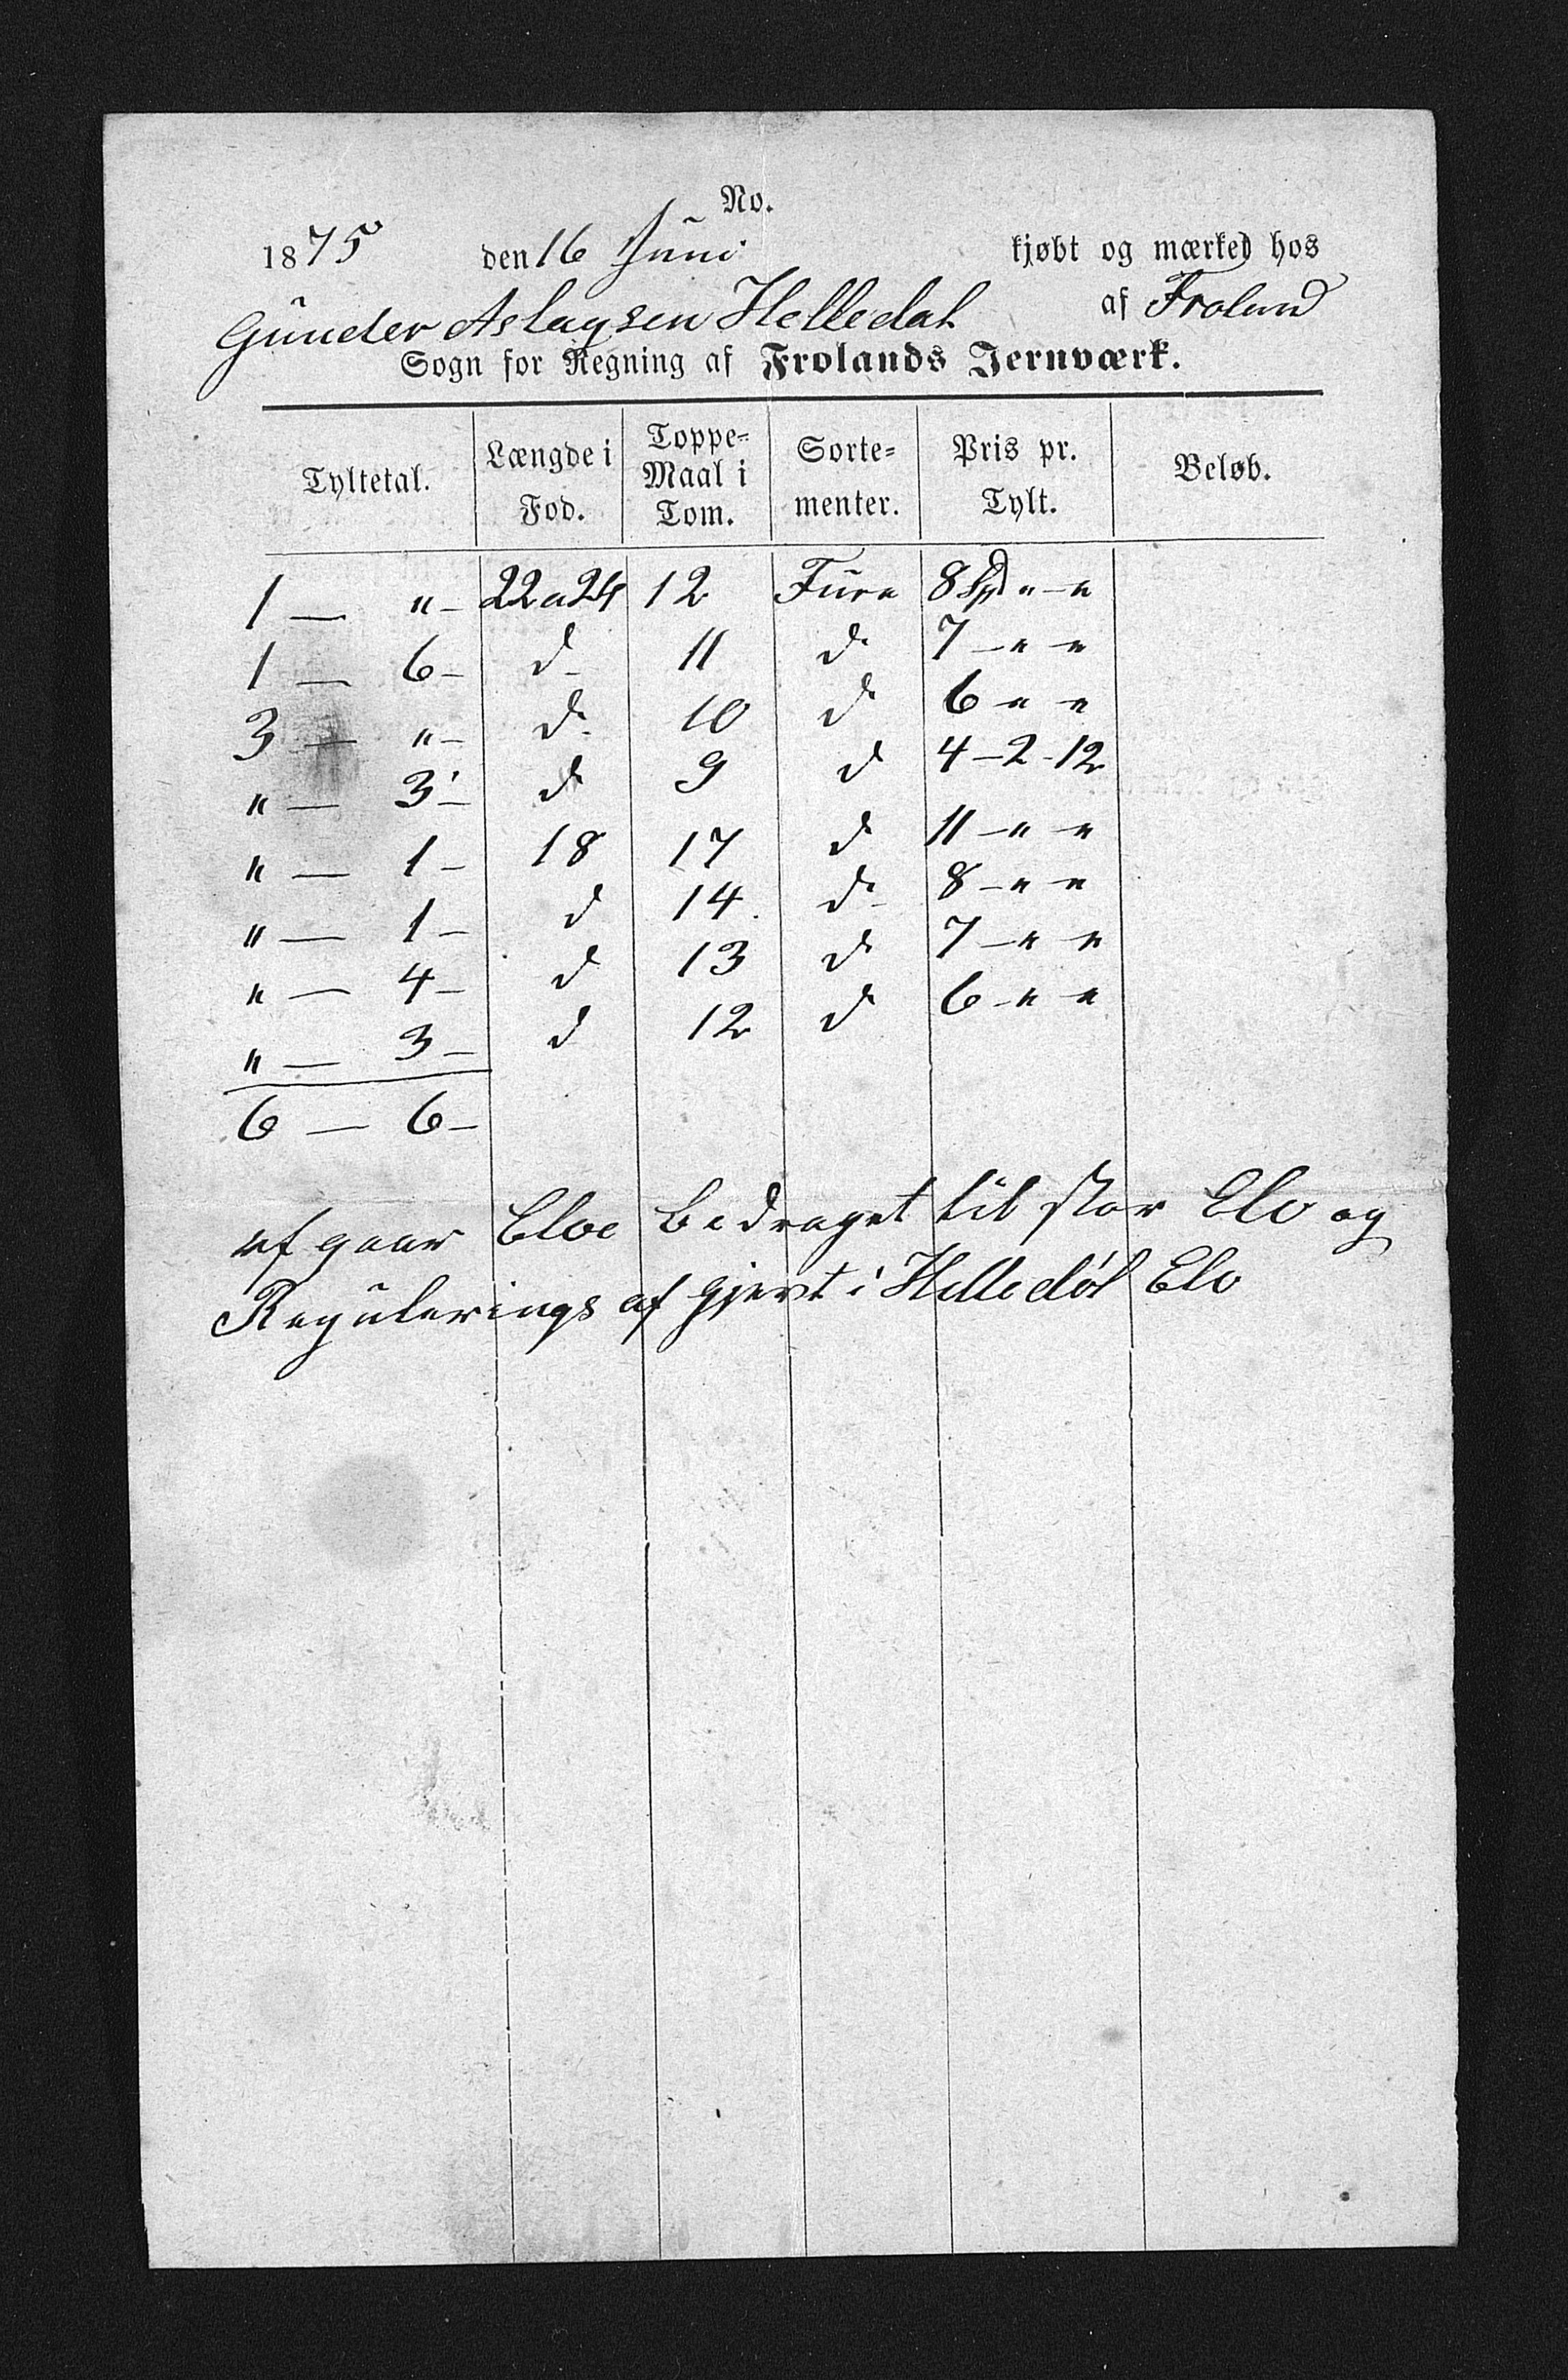 No.
1875 den 16 Juni kjøbt og mærked hos
Gunder Aslagsen Helledal af Froland
Sogn for Regning af Frolands Jernværk.
Tyltetal. Længde i Fod. Toppe-Maal i Tom. Sorte-menter. Pris pr. Tylt. Beløb.
1 — " – 22 a 24 12 Furu 8 Spd " – "
1 — 6 – d– 11 d 7 – " – "
3 — " – d– 10 d 6 – " – "
" — 3 – d 9 d 4 – 2 – 12
" — 1 – 18 17 d 11 – " – "
" — 1 – d 14 d– 8 – " – "
" — 4 – d 13 d 7 – " – "
" — 3 – d 12 d 6 – " – "
6 — 6 –
afgaar Elve Bedraget til stor Elv og
Regulerings afgjevt i Helledøl Elv